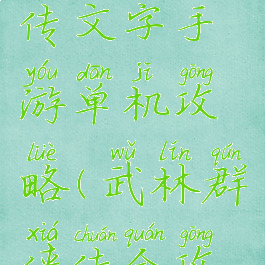 传文字手
yóu dān jī gōng
游单机攻
lüè wǔ lín qún
略(武林群
xiá chuán quán gōng
侠传全攻